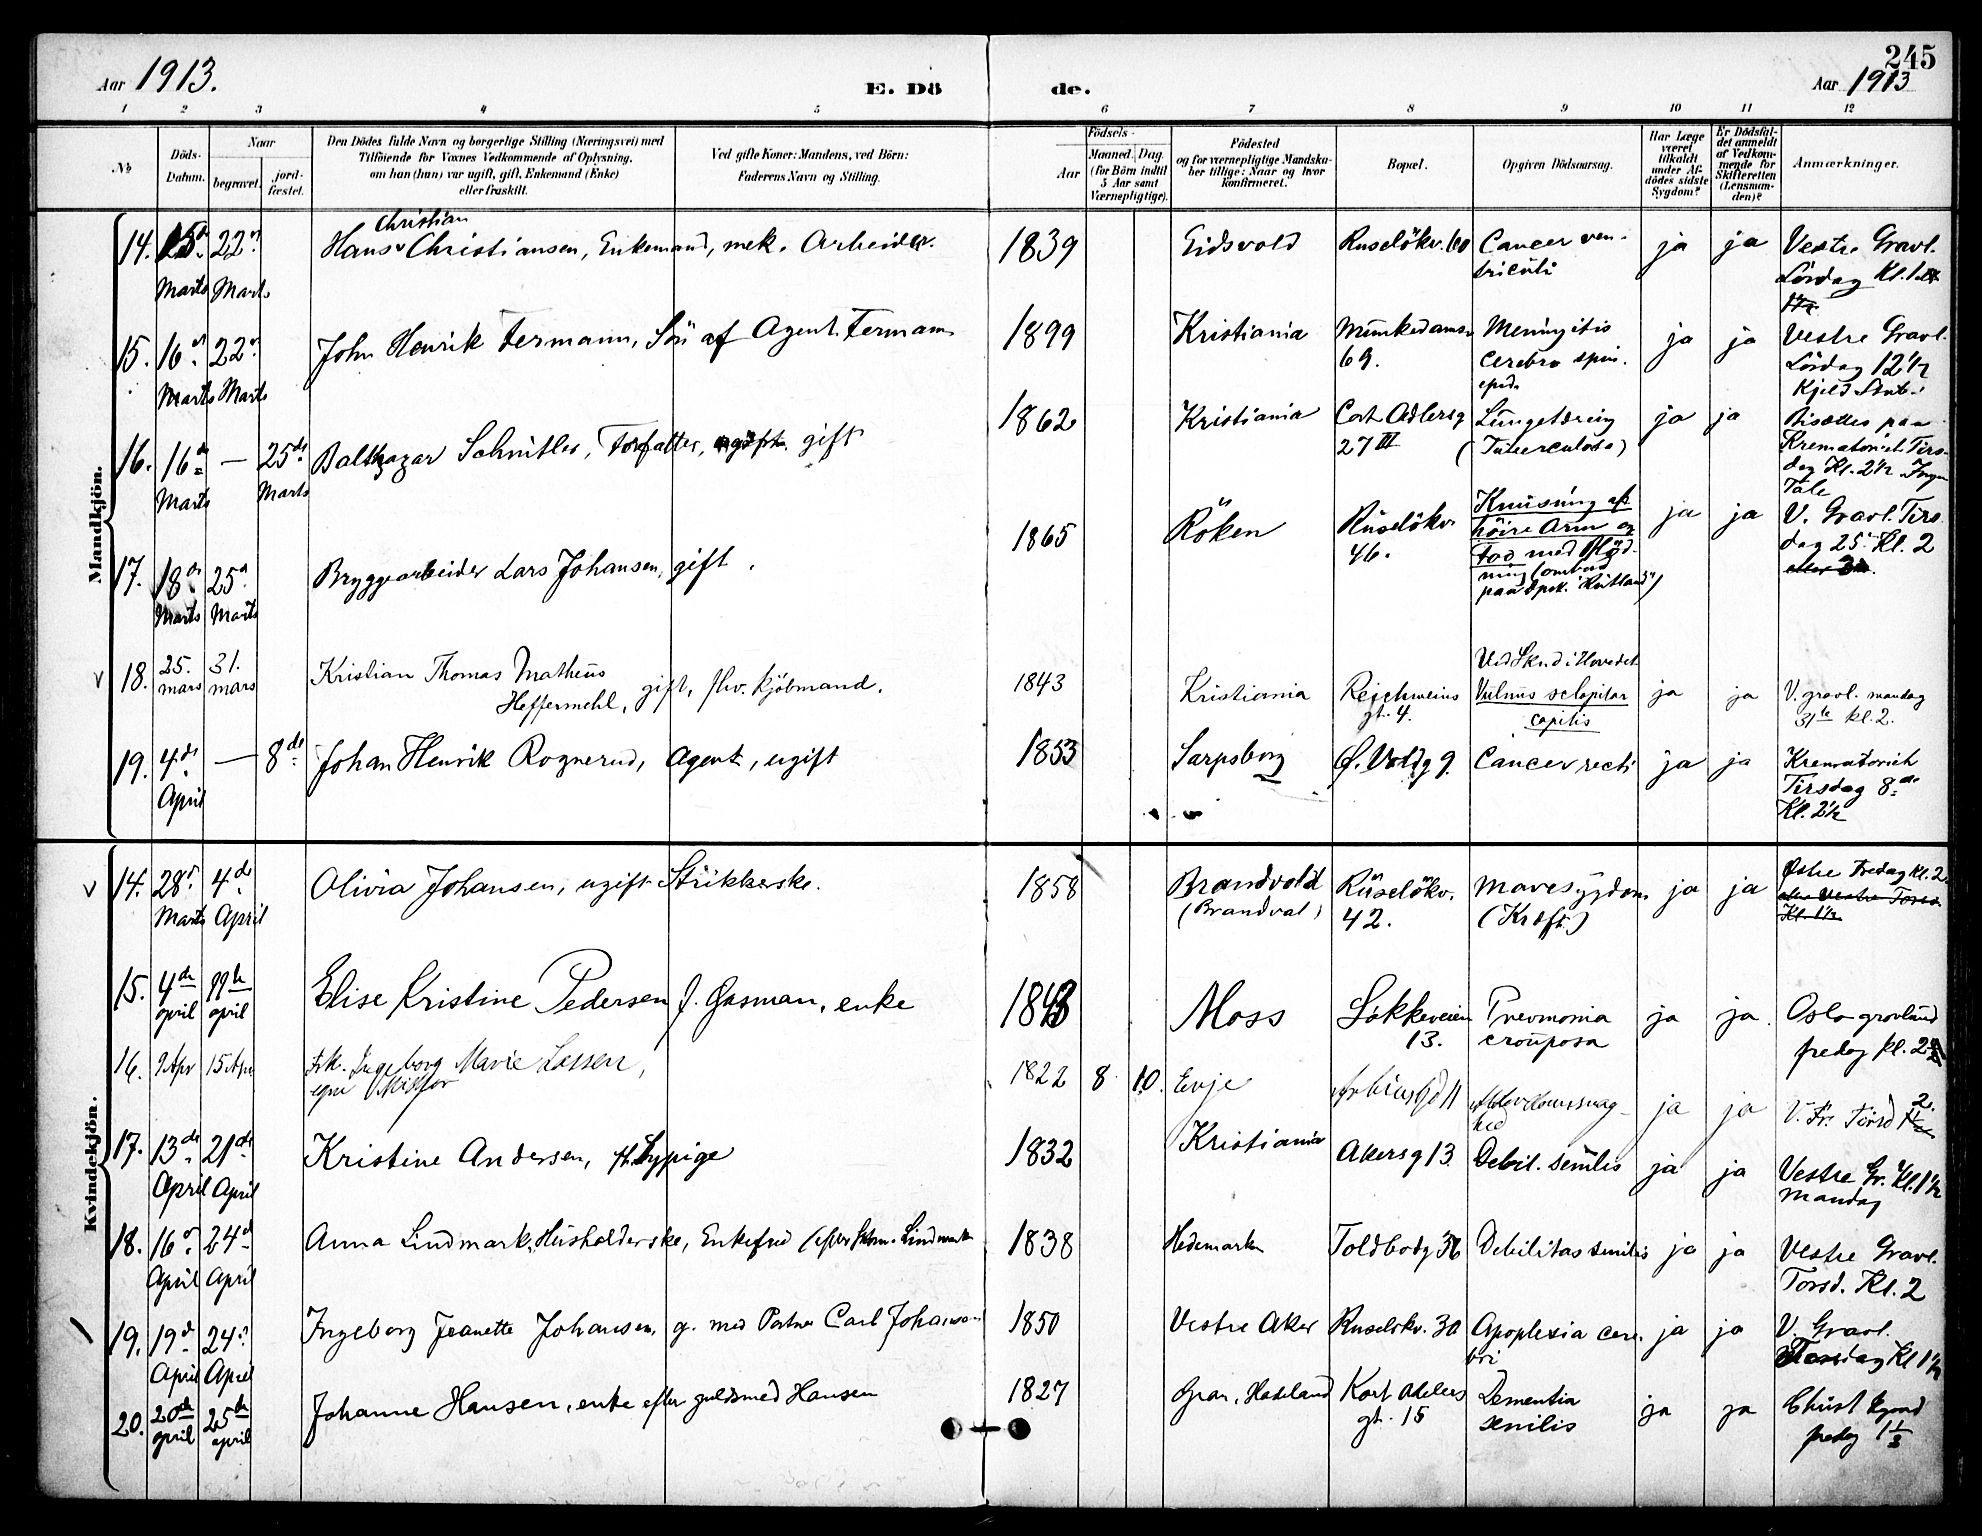 245
Aar 1913.
E. Dö
de.
Aar 1913
1 2 3 4 5 6 7 8 9 10 11 12
No
Döds-Datum.
Naar
begravet.
jordfæstet.
Den Dödes fulde Navn og borgerlige Stilling (Næringsvei) med
Tilföiende for Voxnes Vedkommende af Oplysning,
om han (hun) var ugift, gift, Enkemand (Enke)
eller fraskilt.
Ved gifte Koner: Mandens, ved Börn:
Faderens Navn og Stilling.
Födsels-
Aar
Maaned. Dag.
(for Börn indtil
5 Aar samt
Værnepligtige).
Födested
og for værnepligtige Mandska-
ber tillige: Naar og hvor
konfirmeret.
Bopæl.
Opgiven Dödsaarsag.
Har Læge
været
tilkaldt
under Af-
dödes sidste
Sygdom?
Er Dödsfal-
det anmeldt
af Vedkom-
mende for
Skifteretten
(Lensman-
den)?
Anmærkninger.
Mandkjön.
14. 15 Marts 22 Marts Hans Christian Christiansen, Enkemand, mek. Arbeider. 1839 Eidsvold Ruselökv. 60 Cancer ven-
triculi ja ja Vestre Gravl.
Lördag Kl. 1
15. 16 Marts 22 Marts John Henrik Fermann, Sön af Agent Fermann 1899 Kristiania Munkedamsv
69. Meningitis
cerebro spin.
epid. ja ja Vestre Gravl.
Lördag 12 1/2
Kjeld Stub.
16. 16de Marts — 25de Marts Balthazar Schnitler, Forfatter, gift 1862 Kristiania Cort Adlersg
27 III Lungetæring
(Tuberculose) ja ja Bisættes paa
Krematoriet Tirs-
dag Kl. 2 1/2 Ingen
Tale
17. 18de Marts 25d Marts Bryggearbeider Lars Johansen, gift. 1865 Röken Ruselökv.
46. Knusning af
höire Arm og
med Blöd-
ning (ombord
paa Dpsk. ja ja V. Gravl. Tirs
dag 25. Kl. 2
18. 25. mars 31. mars Kristian Thomas Matheus
Heffermehl, gift, fhv. kjöbmand. 1843 Kristiania Reichweins
gt. 4. Ved Skud i Hovedet
Vulnus sclopitar
capitis ja ja V. gravl. mandag
31te kl. 2.
19. 4de April — 8de Johan Henrik Rognerud, Agent, ugift 1853 Sarpsborg Ø. Voldg 9. Cancer recti ja ja Krematoriet
Tirsdag 8de
Kl. 2 1/2
Kvindekjön.
14. 28 Marts 4de April Olivia Johansen, ugift Strikkerske. 1858 Brandvold
(Brandval) Ruselökv.
42. Mavesygdom
(Kræft) ja ja Østre Fredag Kl. 2
eller Vestre Torsd
Kl. 1 1/2
15. 4de april 11te april Elise Kristine Pedersen f. Gasman, enke 1843 Moss Løkkeveien
13. Pnevmonia
crouposa ja ja. Oslo gravlund
fredag kl. 2
16. 9 Apr 15 Apr Frk. Ingeborg Marie Lassen, 1822 8 10. Evje Alderdomssvag-
hed ja ja V. Fr. Torsd 2.
17. 13de April 21de April Kristine Andersen, Sypige 1832 Kristiania Akersg 13. Debil. senilis ja ja Vestre Gr. Kl. 1 1/2
Mandag
18. 16d April 24d April Anna Lindmark, Husholderske, Enkefru (efter Lindmark 1838 Hedemarken Toldbodg 36 Debilitas senilis ja ja Vestre Gravl.
Torsd. Kl. 2
19. 19d April 24d April Ingeborg Jeanette Johansen, g. med Carl Johansen 1850 Vestre Aker Ruselökv. 30 Apoplexia cere-
bri ja ja V. Gravl.
Torsdag Kl 1 1/2
20. 20de april 25de april Johanne Hansen, enke efter guldsmed Hansen 1827 Gran, Hadeland Kort Adelers
gt. 15 Dementia
senilis ja ja Christ Kgaard
fredag 1 1/2